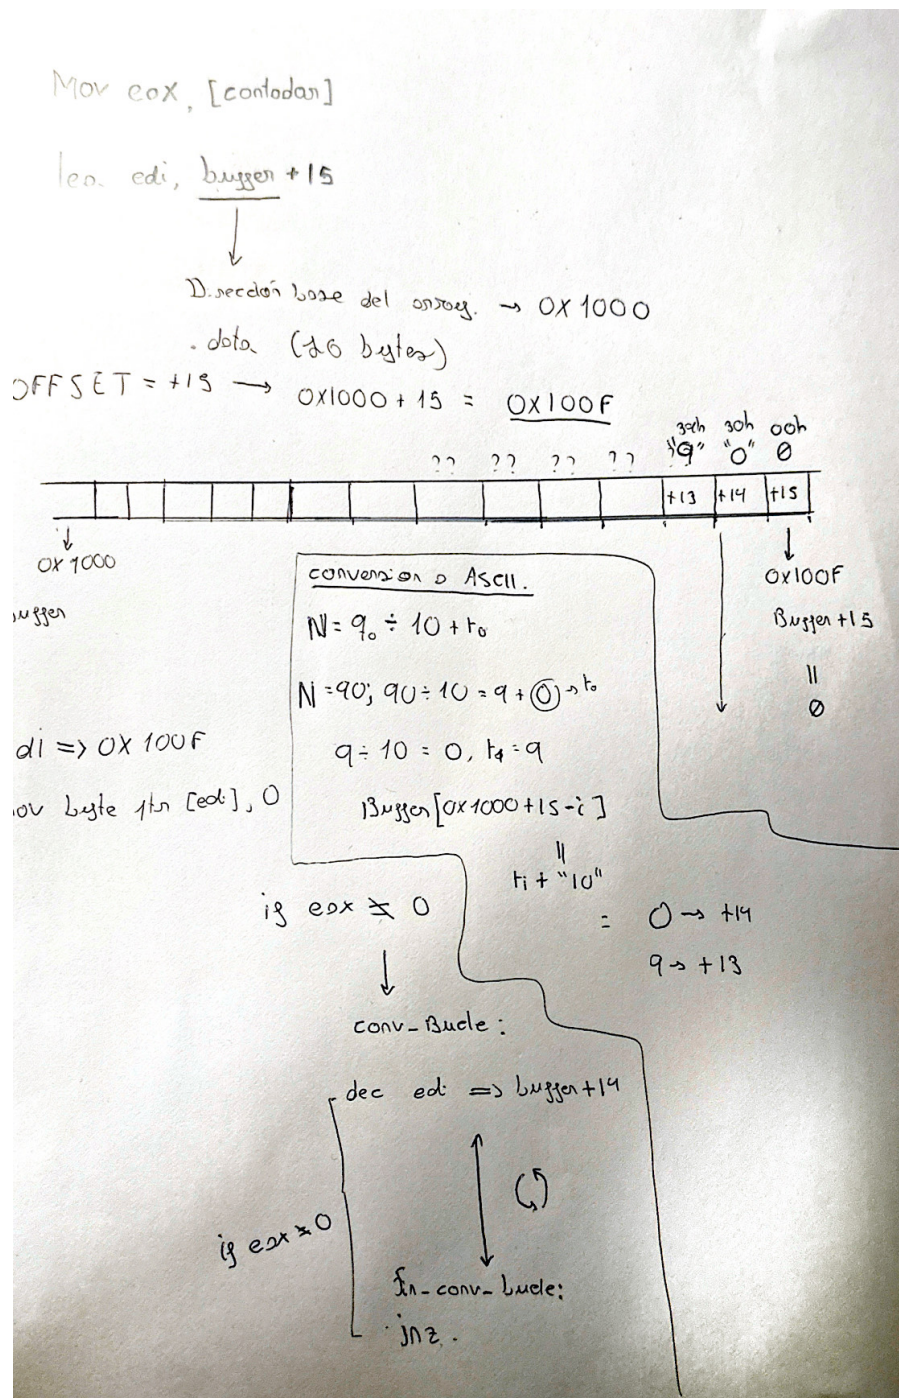 Mov eax, [contador]
lea. edi, buffer + 15
Dirección base del array. → 0X1000
.data (16 bytes)
OFFSET = +15 → 0X1000 + 15 = 0X100F
39h 30h 00h
?? ?? ?? ?? "9" "0" 0
+13 +14 +15
0X1000
0X100F
uffer
Buffer +15
||
0
conversion a ASCII.
N = q₀ ÷ 10 + r₀
N = 90; 90 ÷ 10 = 9 + 0 → r₀
9 ÷ 10 = 0, r₁ = 9
Buffer[0X1000+15-i]
||
ri + "10"
= 0 → +14
9 → +13
di => 0X100F
ov byte ptr [edi], 0
if eax ≠ 0
conv_Bucle:
dec edi => buffer+14
if eax ≠ 0
fin_conv_bucle:
jnz.